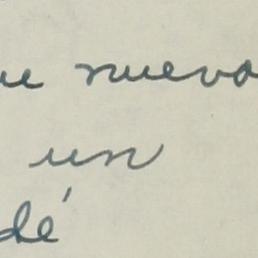 ue nuevo
un
dé